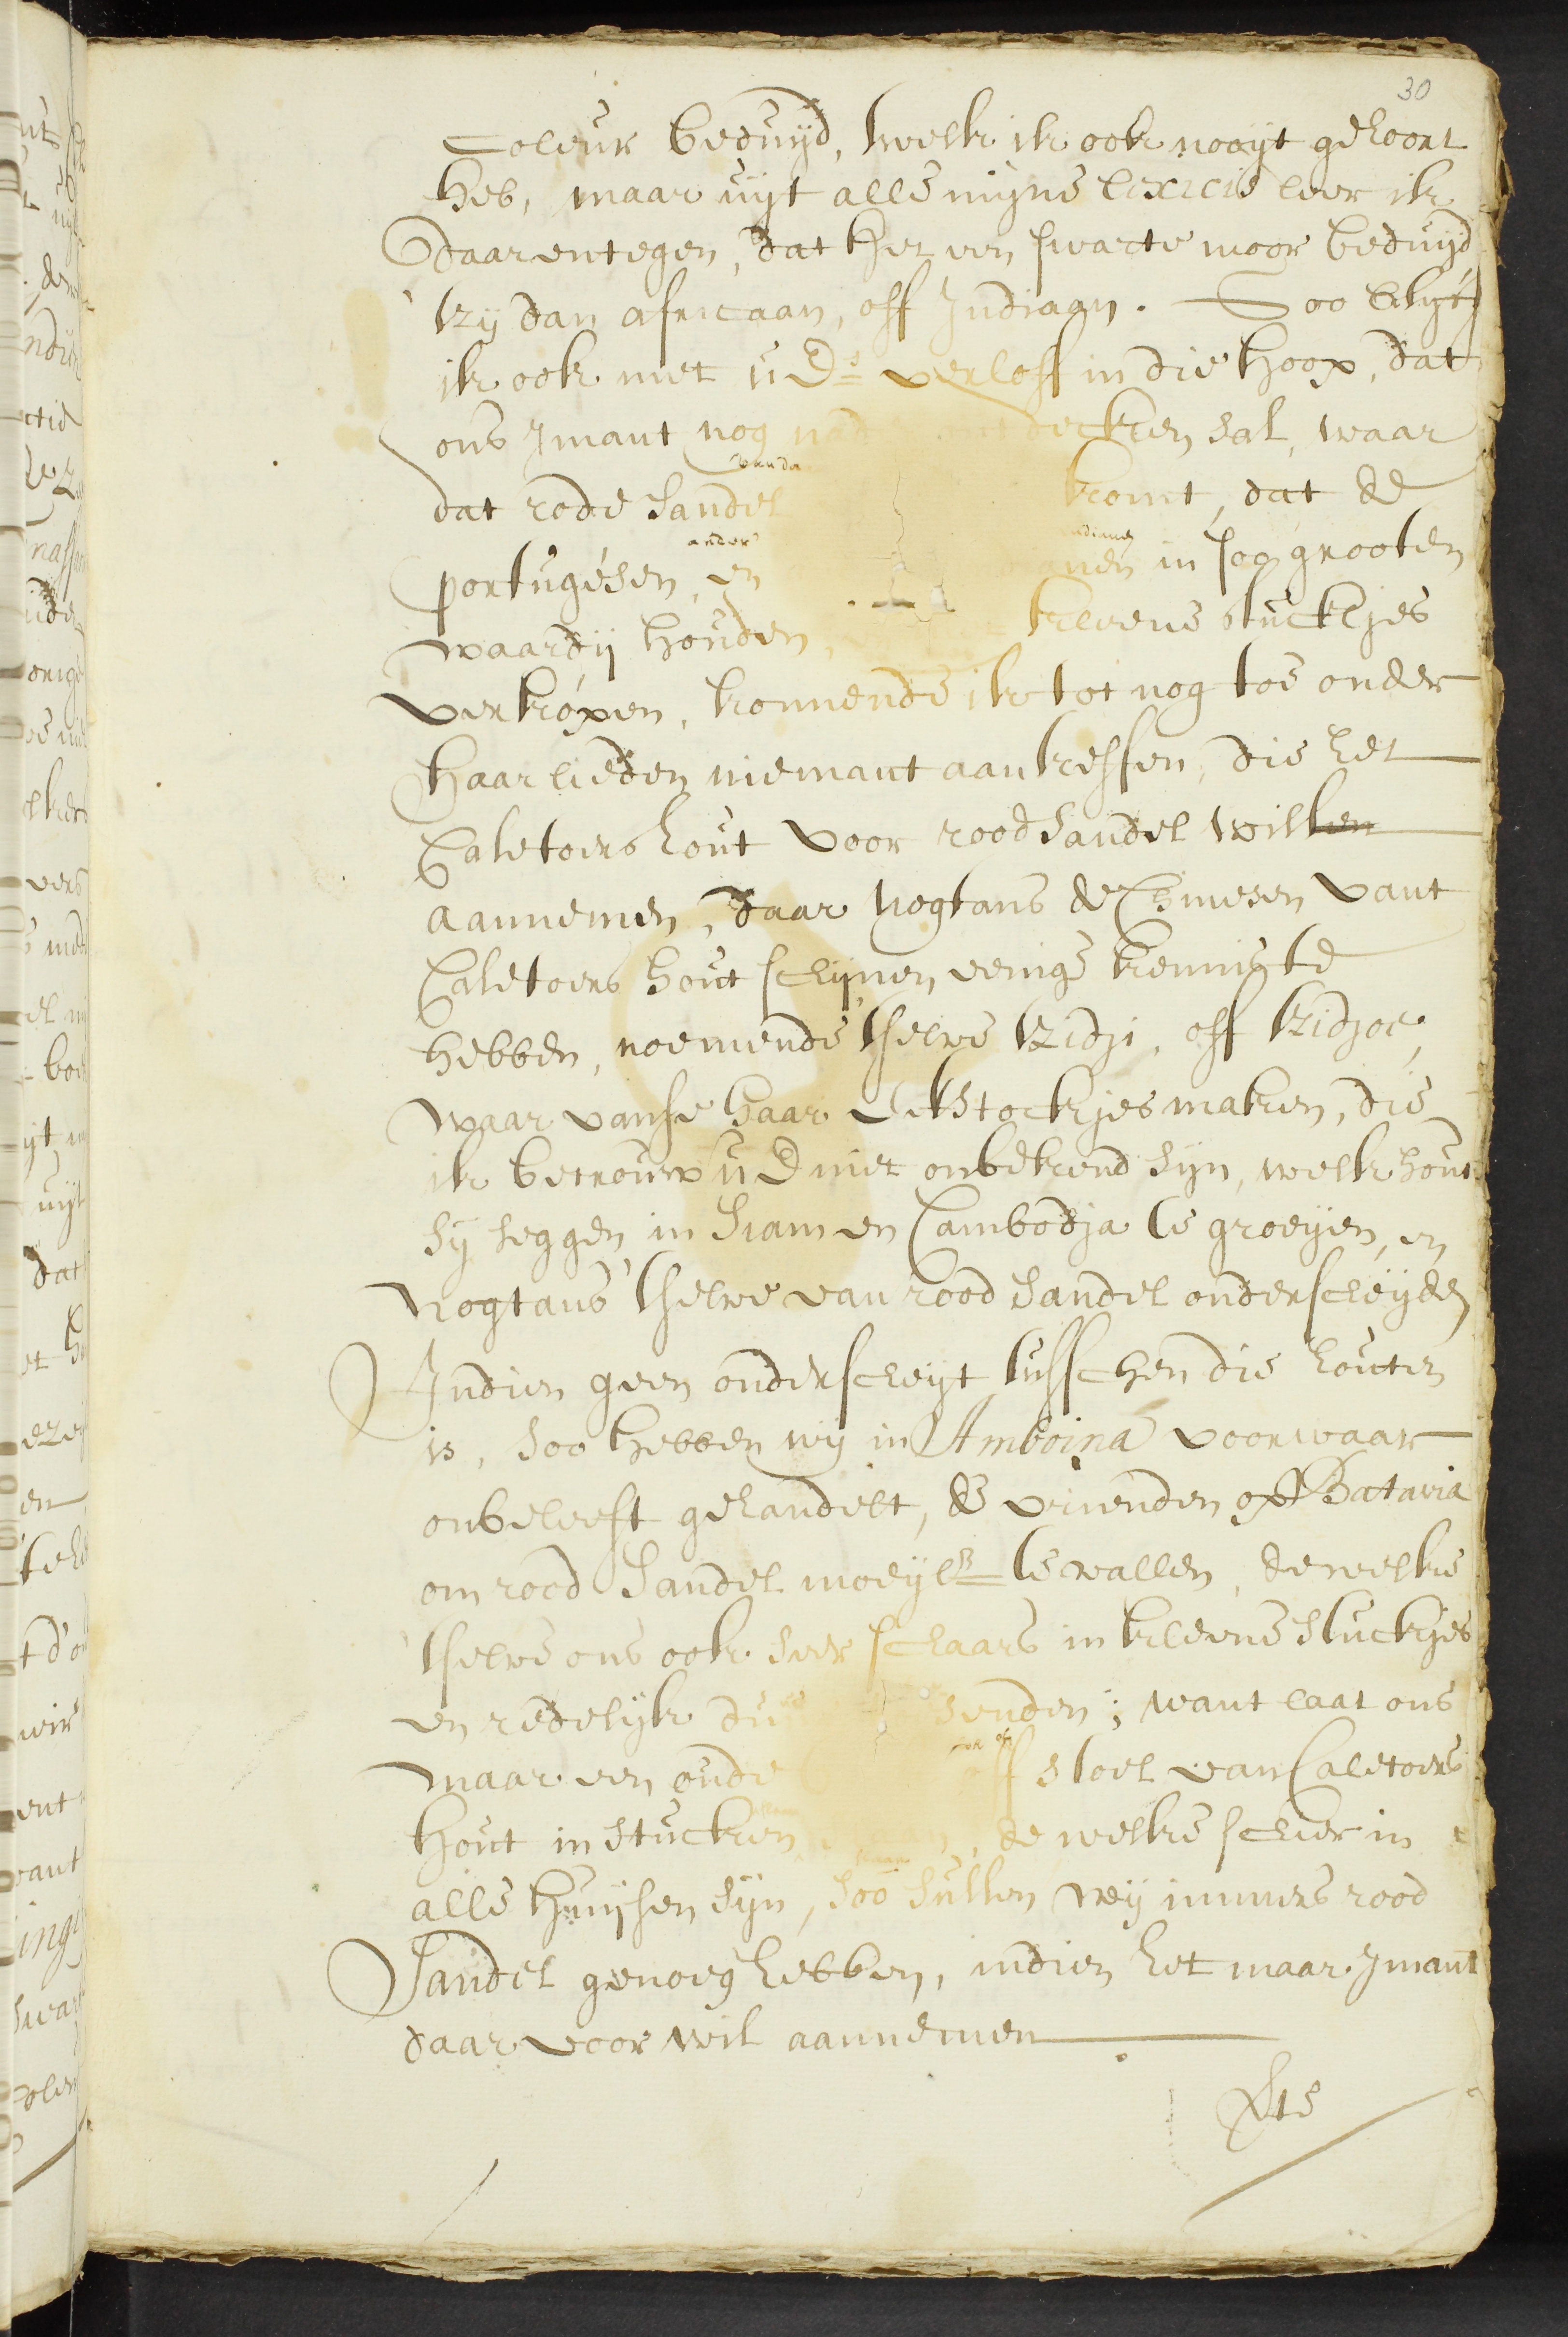 30
Coleur beduijd, welk ik ook nooijt gehoort
heb, maar uijt alle mijne lexicis leer ik
daarentegen, dat het een swarte moor beduijd
tzij dan africaan, off Indiaan. Soo blijf
ik ook met UEds verloff in die hoop, dat
ons Imant nog decken sal, waar
dat rode sandel komt, dat de
ander
portugesen, en in soo grooten
waardij houden, kleene stuckjes
verkopen, konnende ik tot nog toe onder
haarlieden niemant aantreffen, die het
Caletoers hout voor rood sandel willen
aannemen, daar nogtans de Chinesen vant
Caletoers hout schijnen eenige kennis te
hebben, noemende 'tselve tzidji, off tzidjoe,
waar vanse haar eetstockjes maken, die
ik betrouw UEd niet onbekend sijn, welk hout
sij seggen in Siam en Cambodja te groeijen, en
nogtans 'tselve van rood sandel onderscheijden
Indien geen onderscheijt tusschen die houten
is, soo hebben wij in Amboina voorwaar
onbeleeft gehandelt, de vrienden op Batavia
om rood sandel moeijel te vallen, dewelke
'tselve ons ook seer schaars in kleene stuckjes
en redelijk senden; want laat ons
maar een oude off stoel van Caletoers
hout in stucken, de welke schier in
alle huijsen sijn, soo sullen wij immers rood
Sandel genoeg hebben, indien het maar Imant
daar voor wil aannemen